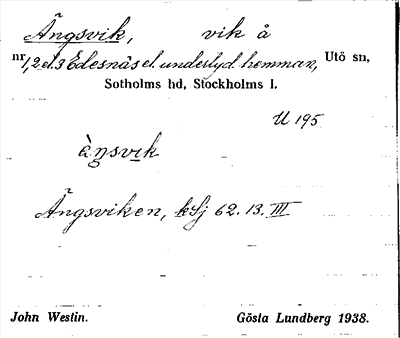 Ängsvik, vik å
nr 1, 2 el. 3 Edesnäs el. underlyd. hemman, Utö sn,
Sotholms hd, Stockholms l.
U 195
ä̀ŋsvi̲k
Ängsviken, kSj 62. 13. III
John Westin. Gösta Lundberg 1938.